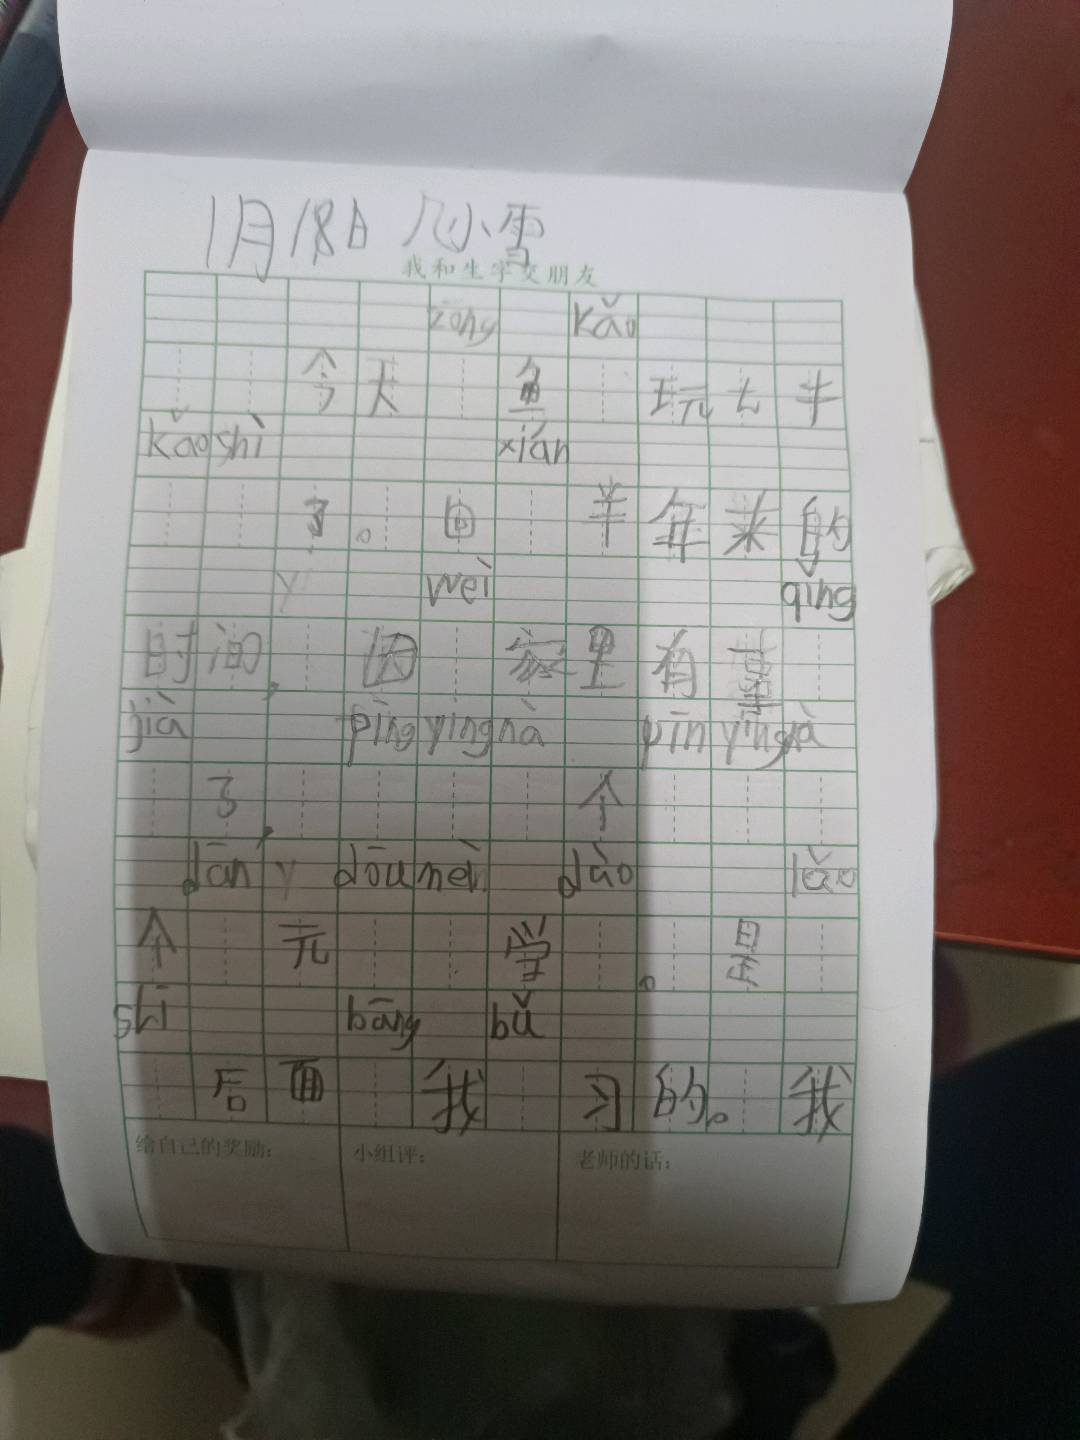 1月18日 小雪
我和生字交朋友
zōng kǎo
今天 鱼 玩 七 牛
kǎo shì xián
了。 回 羊 年 来 的
y wèi qǐng
时间, 因 家里有事
jià pīng yīng nà pīn yīng nà
了, 个
dān y dōu nèi dào lǎo
个 元 学 。 是
shī bāng bǔ
后面 我 习的。我
给自己的奖励:
小组评:
老师的话: